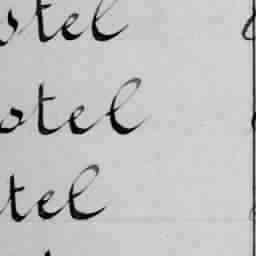 stel
ostel
tel